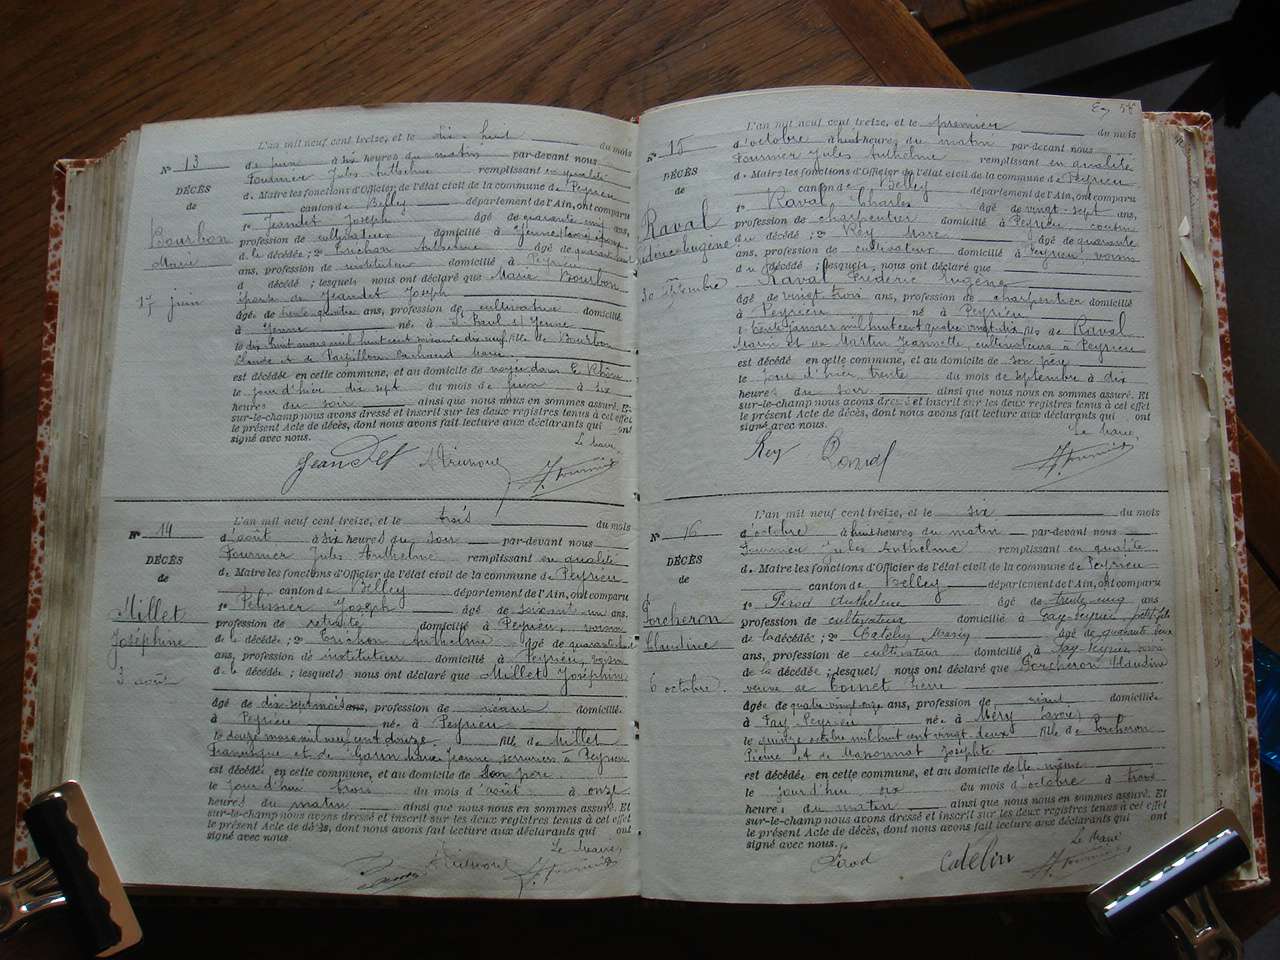 L'an mil neuf cent treize, et le dix-huit du mois
N° 13
de juin à six heures du matin par-devant nous
Fournier Jules Anthelme remplissant en qualité
DÉCÈS
de Maire les fonctions d'Officier de l'état civil de la commune de Peyrieu
de
canton de Belley département de l'Ain, ont comparu
1° Jeandet Joseph âgé de quarante ans,
Bourbon
Marie
profession de cultivateur domicilié à Yenne
d la décédée ; 2° Anthelme âgé de quarante
ans, profession de instituteur domicilié à Peyrieu
d décédé ; lesquels nous ont déclaré que Marie Bourbon
17 juin
épouse de Jeandet Joseph
âgé e de trente quatre ans, profession de cultivatrice domicilié
à Yenne né e à St Paul s/ Yenne
le dix huit mars mil huit cent soixante dix neuf fille de Bourbon
Claude et de Papillon
est décédée en cette commune, et au domicile de noyée dans le Rhône
le jour d'hier dix sept du mois de juin à six
heures du soir ainsi que nous nous en sommes assuré. Et
sur-le-champ nous avons dressé et inscrit sur les deux registres tenus à cet effet
le présent Acte de décès, dont nous avons fait lecture aux déclarants qui ont
signé avec nous.
Le Maire,
Jeandet
J. Fournier
L'an mil neuf cent treize, et le trois du mois
N° 14
d'août à six heures du soir par-devant nous
Fournier Jules Anthelme remplissant en qualité
DÉCÈS
de Maire les fonctions d'Officier de l'état civil de la commune de Peyrieu
de
canton de Belley département de l'Ain, ont comparu
1° Pelissier Joseph âgé de soixante un ans,
Millet
Joséphine
profession de retraité domicilié à Peyrieu, voisin
de la décédée ; 2° Anthelme âgé de quarante
ans, profession de instituteur domicilié à Peyrieu, voisin
3 août
de la décédée ; lesquels nous ont déclaré que Millet Joséphine
âgée de dix sept mois ans, profession de néant domicilié
à Peyrieu née à Peyrieu
le douze mars mil neuf cent douze fille de Millet
Françique et de Garin Jeanne, à Peyrieu
est décédée en cette commune, et au domicile de son père
le jour d'hui trois du mois d'août à onze
heures du matin ainsi que nous nous en sommes assuré. Et
sur-le-champ nous avons dressé et inscrit sur les deux registres tenus à cet effet
le présent Acte de décès, dont nous avons fait lecture aux déclarants qui ont
signé avec nous.
Le Maire,
J. Fournier
L'an mil neuf cent treize, et le premier du mois
N° 15
d'octobre à huit heures du matin par-devant nous
Fournier Jules Anthelme remplissant en qualité
DÉCÈS
de Maire les fonctions d'Officier de l'état civil de la commune de Peyrieu
de
canton de Belley département de l'Ain, ont comparu
1° Raval Charles âgé de vingt-sept ans,
Raval
profession de charpentier domicilié à Peyrieu, cousin
du décédé ; 2° Rey Marc âgé de quarante
ans, profession de cultivateur domicilié à Peyrieu, voisin
du décédé ; lesquels nous ont déclaré que
30 septembre
Raval Frédéric Eugène
âgé de vingt trois ans, profession de charpentier domicilié
à Peyrieu né à Peyrieu
le trente janvier mil huit cent quatre vingt dix fils de Raval
Marin et de Martin Jeannette, cultivateurs à Peyrieu
est décédé en cette commune, et au domicile de son père
le jour d'hier trente du mois de septembre à dix
heures du soir ainsi que nous nous en sommes assuré. Et
sur-le-champ nous avons dressé et inscrit sur les deux registres tenus à cet effet
le présent Acte de décès, dont nous avons fait lecture aux déclarants qui ont
signé avec nous.
Le Maire,
Rey Raval J. Fournier
L'an mil neuf cent treize, et le six du mois
N° 16
d'octobre à huit heures du matin par-devant nous
Fournier Jules Anthelme remplissant en qualité
DÉCÈS
de Maire les fonctions d'Officier de l'état civil de la commune de Peyrieu
de
canton de Belley département de l'Ain, ont comparu
1° Pirod Anthelme âgé de trente cinq ans
Porcheron
Claudine
profession de cultivateur domicilié à Fay-Peyrieu, petit fils
de la décédée ; 2° Catelin âgé de quarante deux
ans, profession de cultivateur domicilié à Fay-Peyrieu
de la décédée ; lesquels nous ont déclaré que Porcheron Claudine
6 octobre
veuve de
âgée de quatre vingt onze ans, profession de néant domiciliée
à Fay Peyrieu née à Méry (Savoie)
le quinze octobre mil huit cent vingt deux fille de Porcheron
Pierre et de Massonnat Josephte
est décédée en cette commune, et au domicile de le même
le jourd'hui six du mois d'octobre à trois
heures du matin ainsi que nous nous en sommes assuré. Et
sur-le-champ nous avons dressé et inscrit sur les deux registres tenus à cet effet
le présent Acte de décès, dont nous avons fait lecture aux déclarants qui ont
signé avec nous.
Le Maire
Pirod Catelin J. Fournier